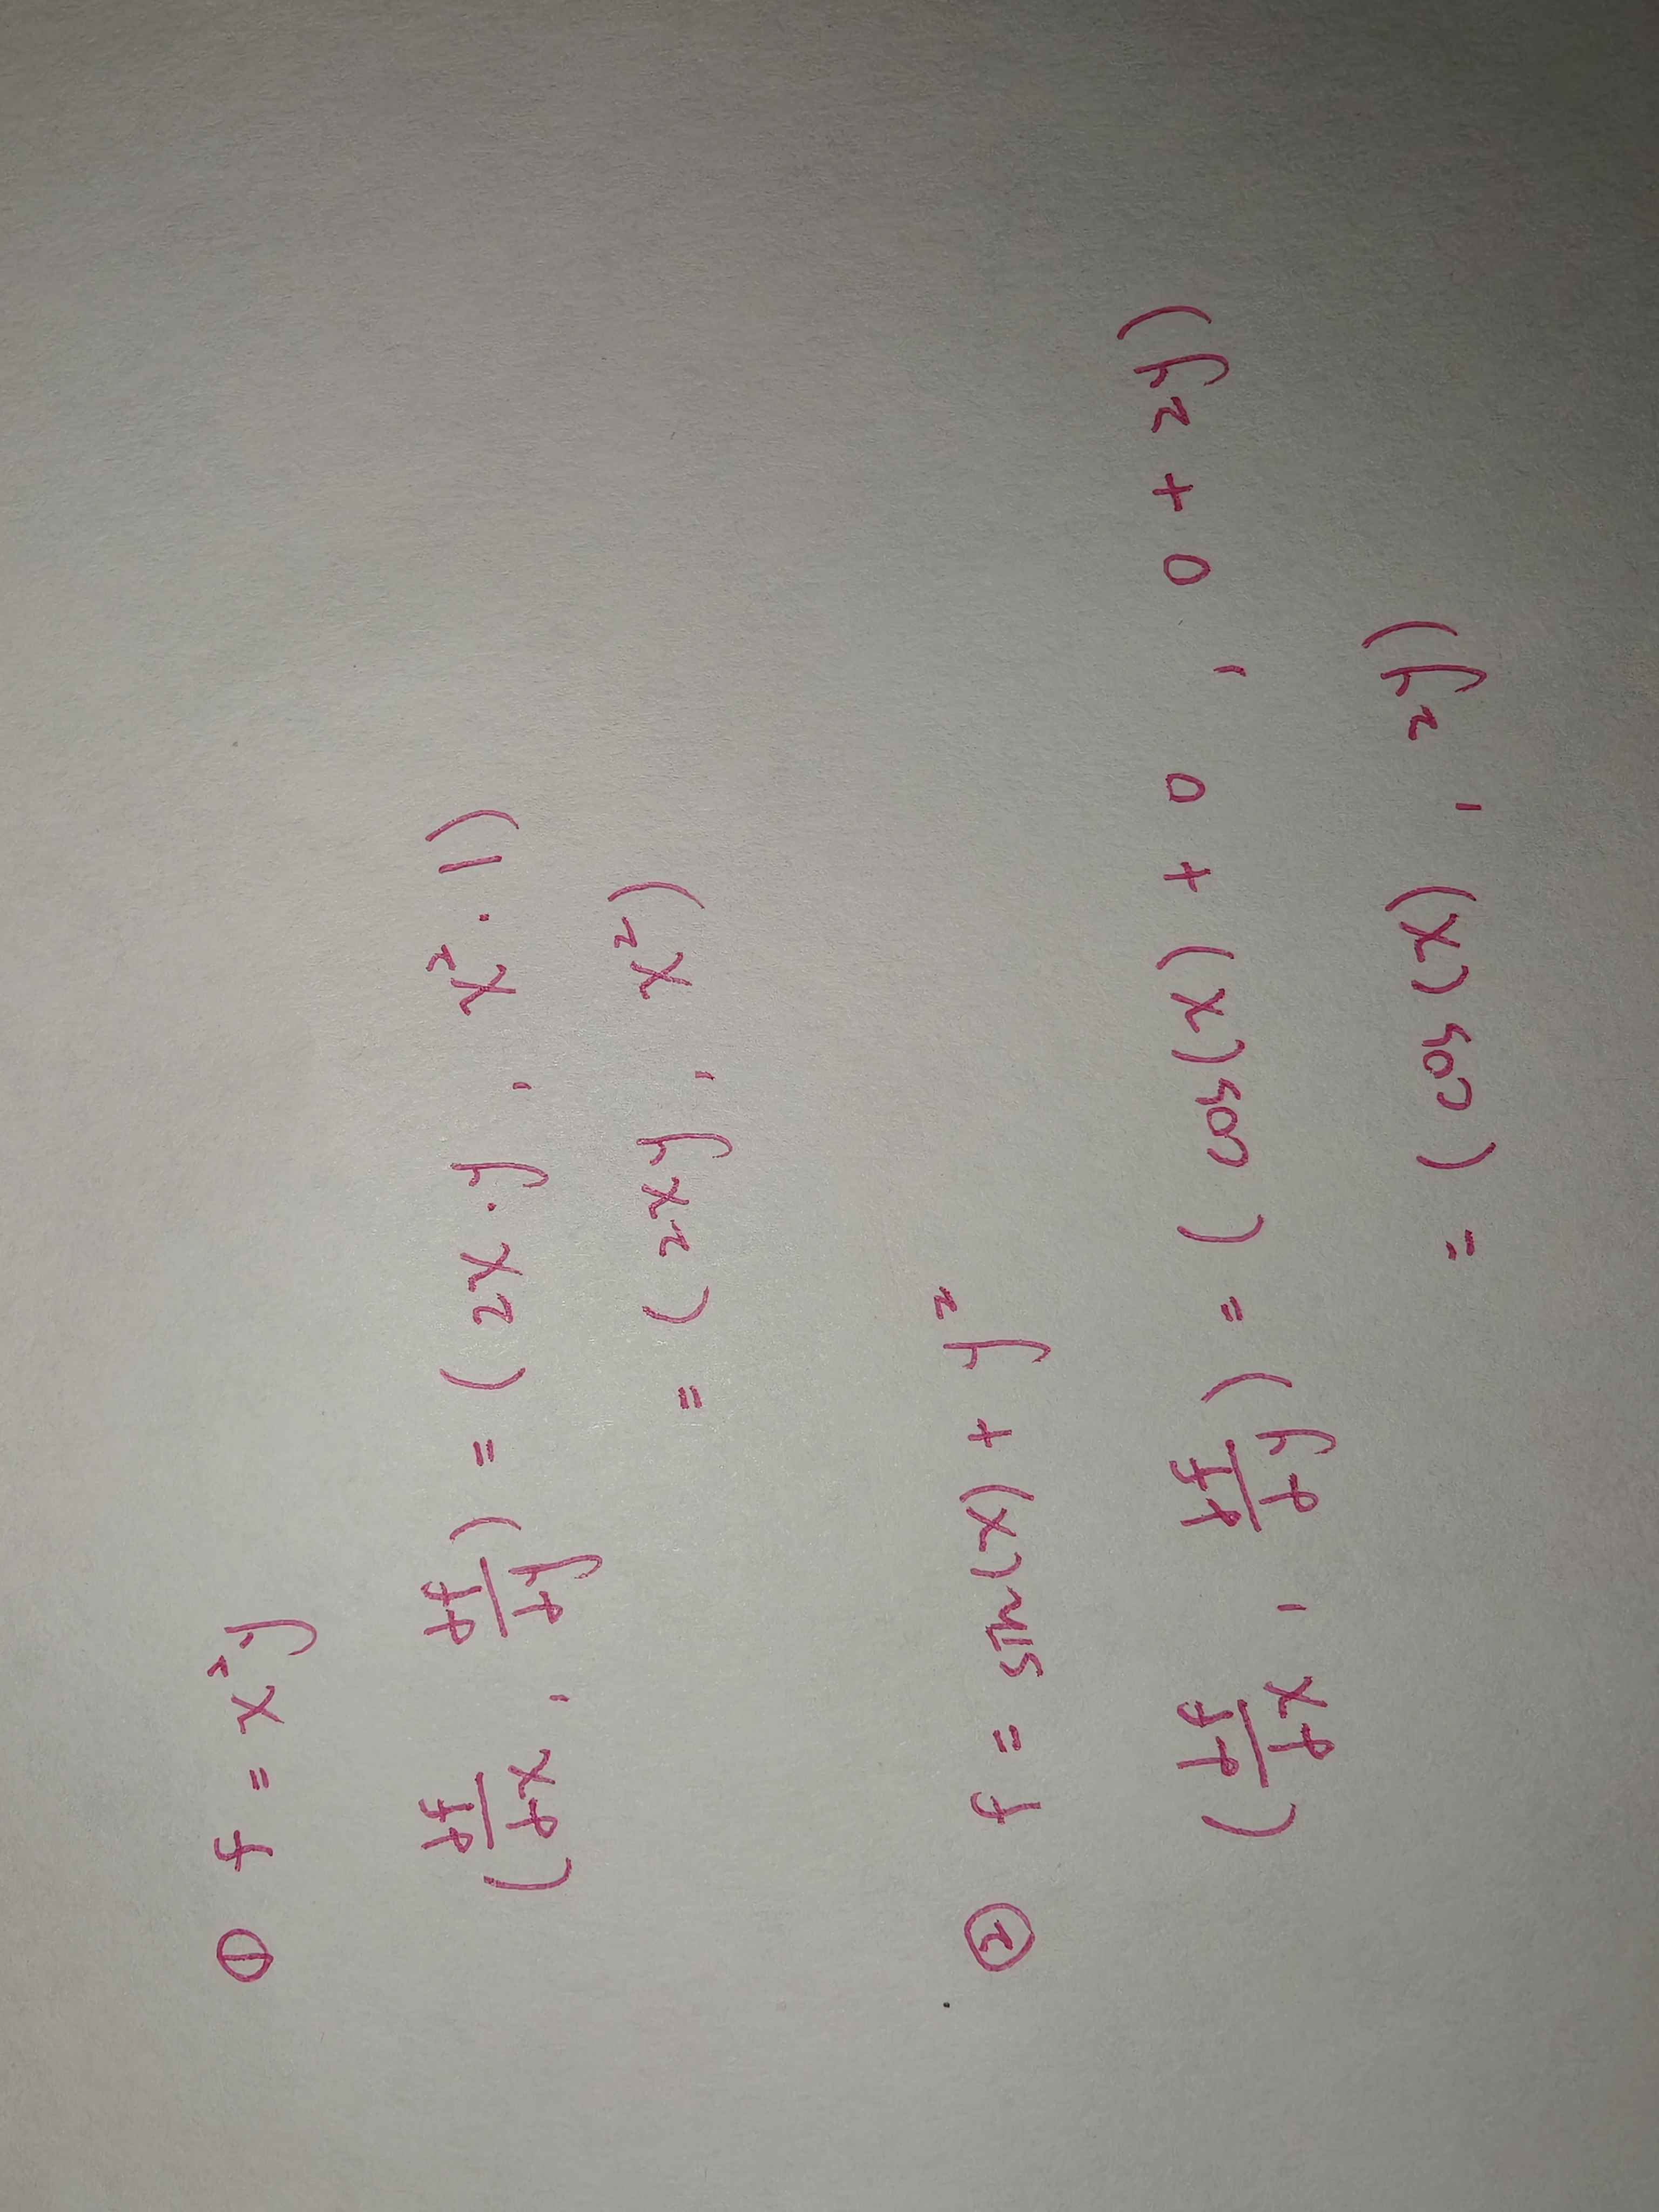 ① f = x²y
(df/dx, df/dy) = (2x·y, x²·1)
= (2xy, x²)
② f = sin(x) + y²
(df/dx, df/dy) = (cos(x) + 0, 0 + 2y)
= (cos(x), 2y)